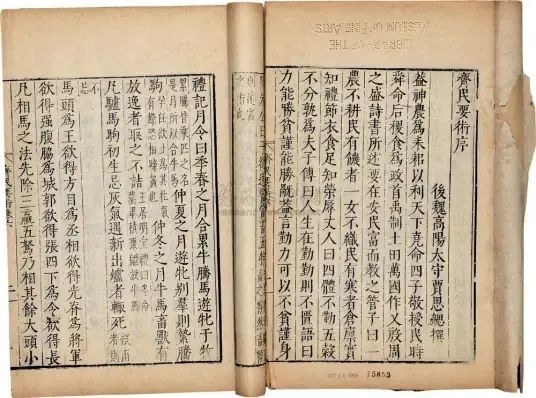 齊民要術序
後魏高陽太守賈思勰撰
蓋神農爲耒耜以利天下堯命四子敬授民時
舜命后稷食爲政首禹制土田萬國作乂殷周
之盛詩書所述要在安民富而教之管子曰一
農不耕民有饑者一女不織民有寒者倉廩實
知禮節衣食足知榮辱丈人曰四體不勤五穀
不分孰爲夫子傳曰人生在勤勤則不匱語曰
力能勝貧謹能勝禍蓋言勤力可以不貧謹身
LIBRARY OF THE
MUSEUM OF FINE ARTS
禮記月令曰季春之月合累牛騰馬遊牝于牧
累騰皆乘匹之名是月所以合牛馬仲夏之月遊牝別羣則縶騰
駒孕任欲止爲其牡氣有餘恐相蹄齧也仲冬之月牛馬畜獸有
放逸者取之不詰王居明堂禮曰孟冬命農畢積聚繼放牛馬
凡驢馬駒初生忌灰氣遇新出爐者輒死經雨者則
不忌
馬頭爲王欲得方目爲丞相欲得光脊爲將軍
欲得强腹脇爲城郭欲得張四下爲令欲得長
凡相馬之法先除三羸五駑乃相其餘大頭小